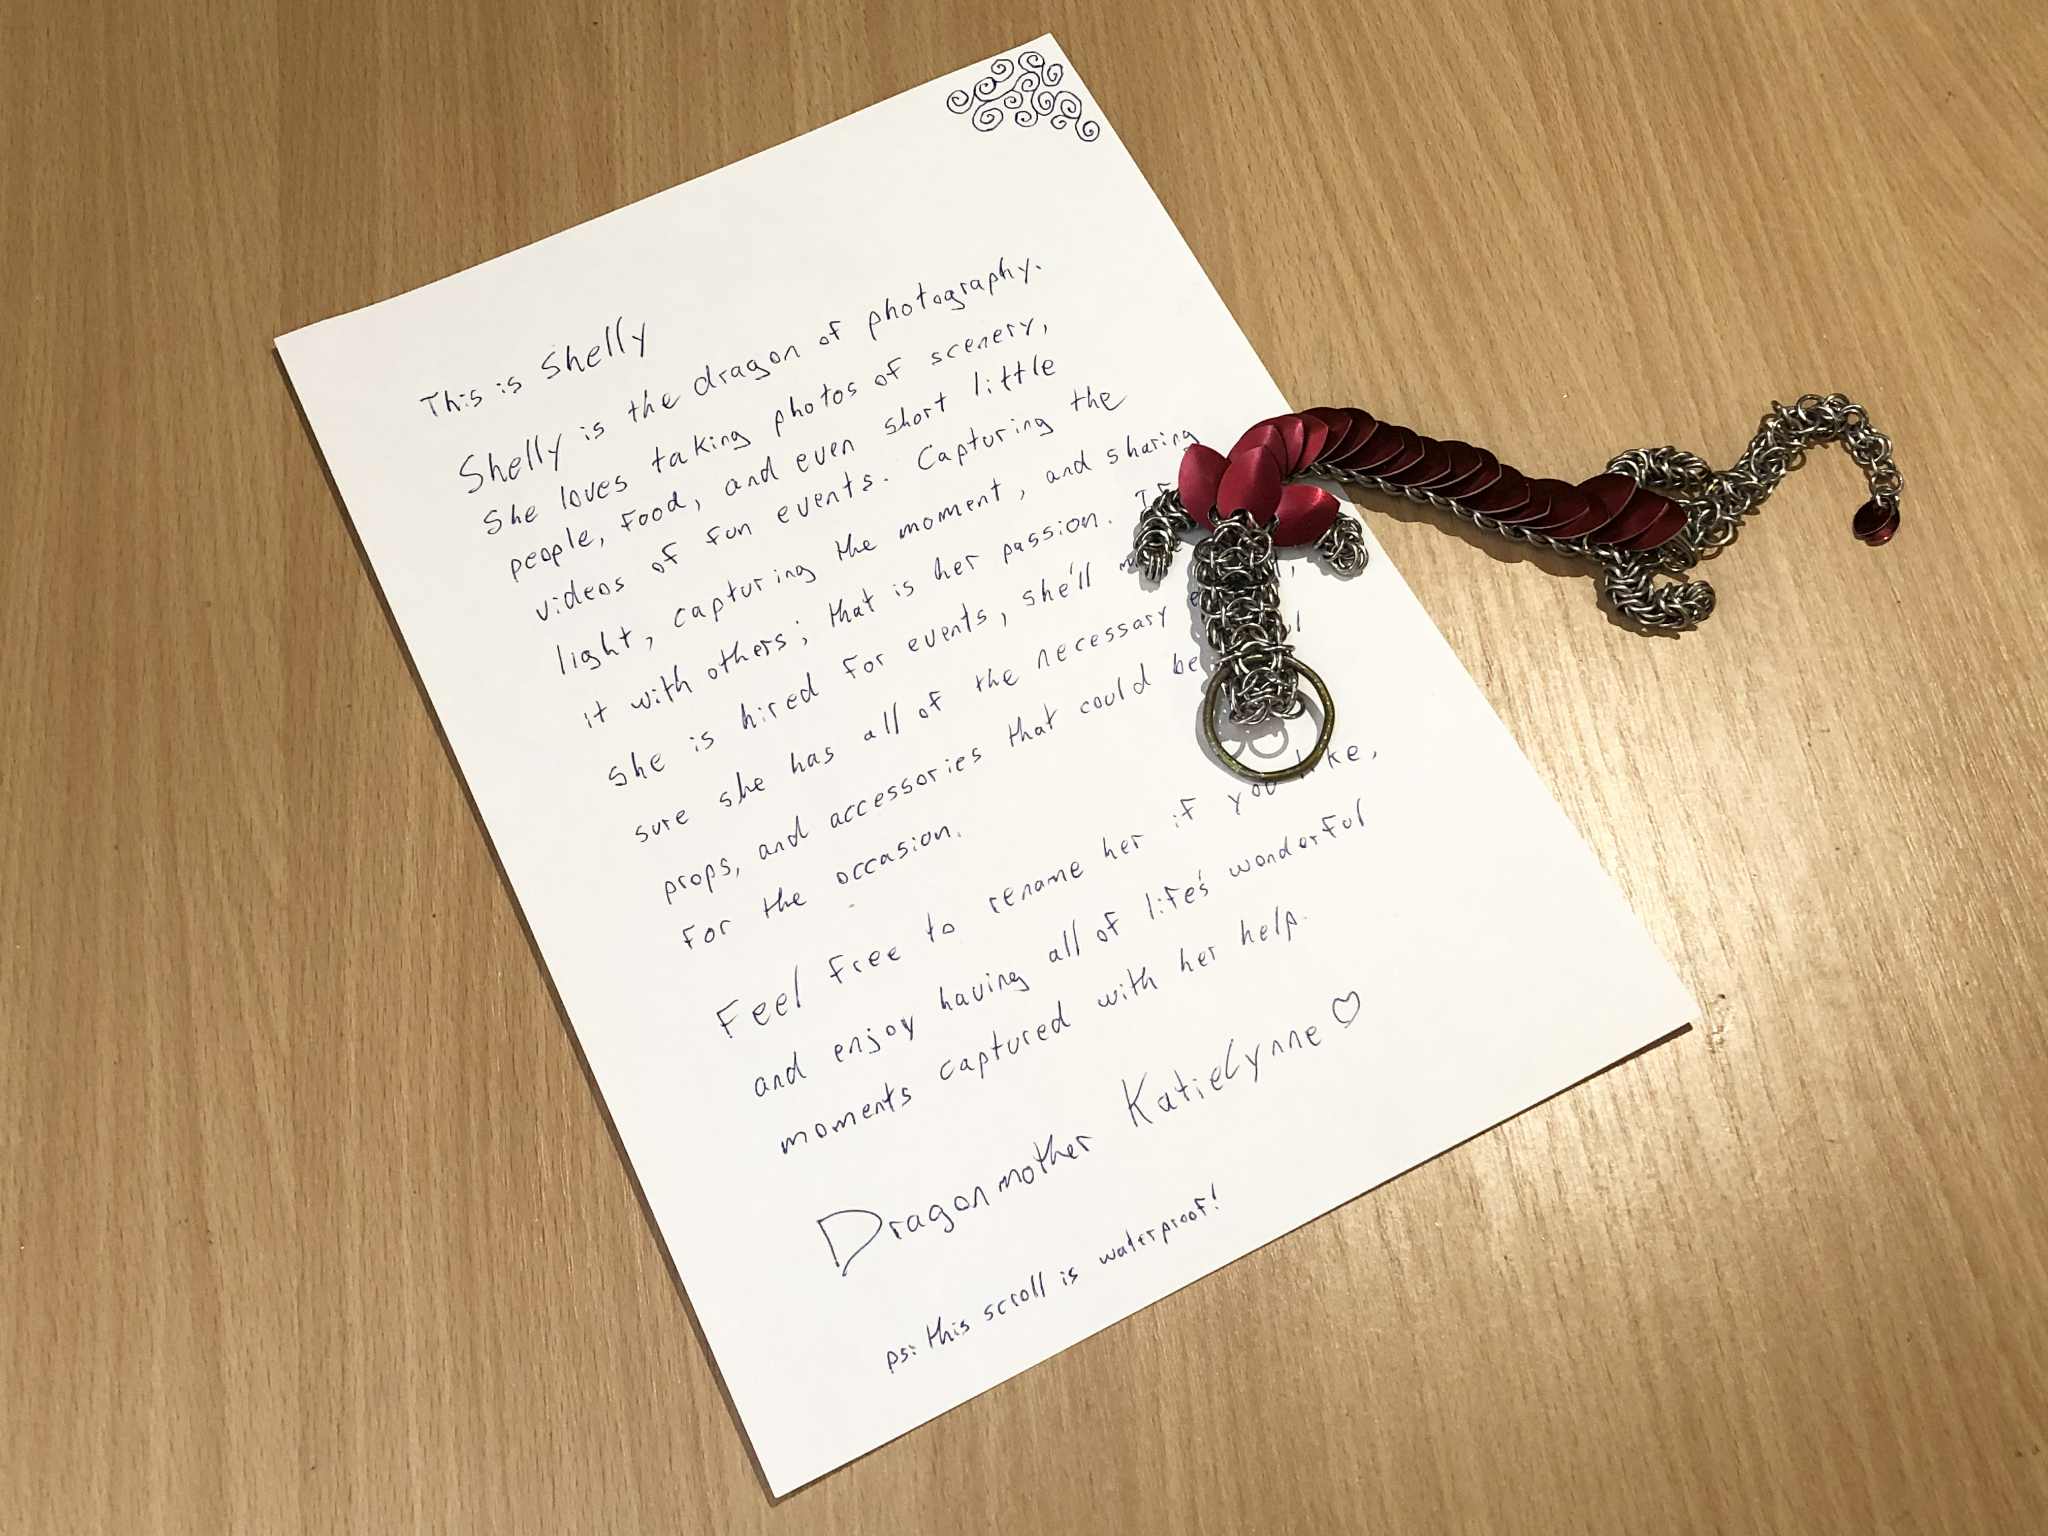 This is Shelly
Shelly is the dragon of photography.
She loves taking photos of scenery,
people, food, and even short little
videos of fun events. Capturing the
light, capturing the moment, and sharing
it with others; that is her passion. If
she is hired for events, she'll
sure she has all of the necessary
props, and accessories that could be
for the occasion.
Feel free to rename her if you like,
and enjoy having all of life's wonderful
moments captured with her help.
Dragonmother KatieLynne ♡
ps: this scroll is waterproof!